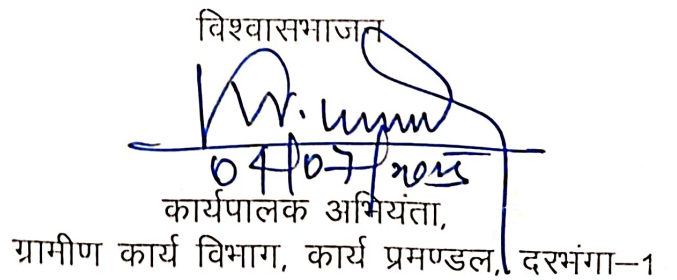 विश्वासभाजन
04/07/2025
कार्यपालक अभियंता,
ग्रामीण कार्य विभाग, कार्य प्रमण्डल, दरभंगा–1